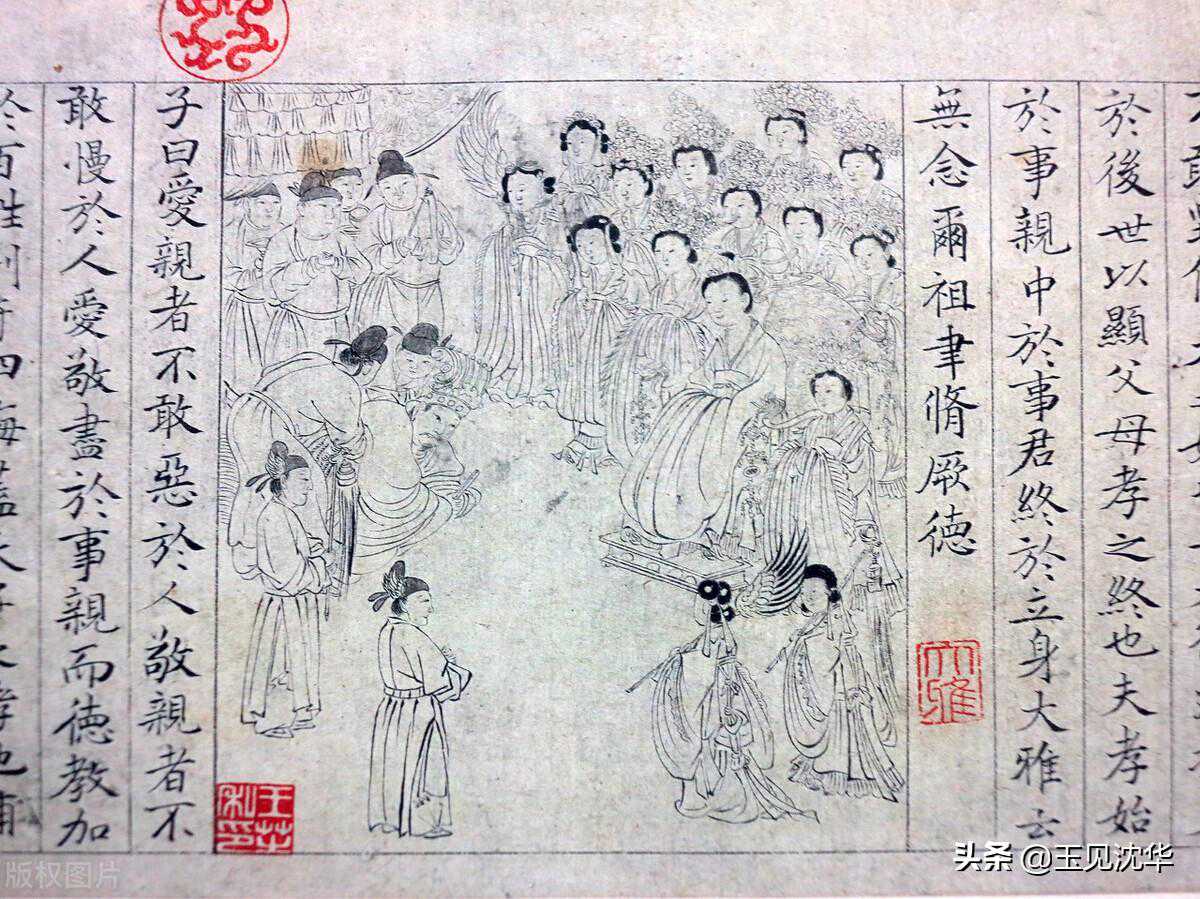 於後世以顯父母孝之終也夫孝始
於事親中於事君終於立身大雅云
無念爾祖聿脩厥德
子曰愛親者不敢惡於人敬親者不
敢慢於人愛敬盡於事親而德教加
於百姓刑于四海蓋天子之孝也甫
王芝私印
版权图片
头条 @玉见沈华